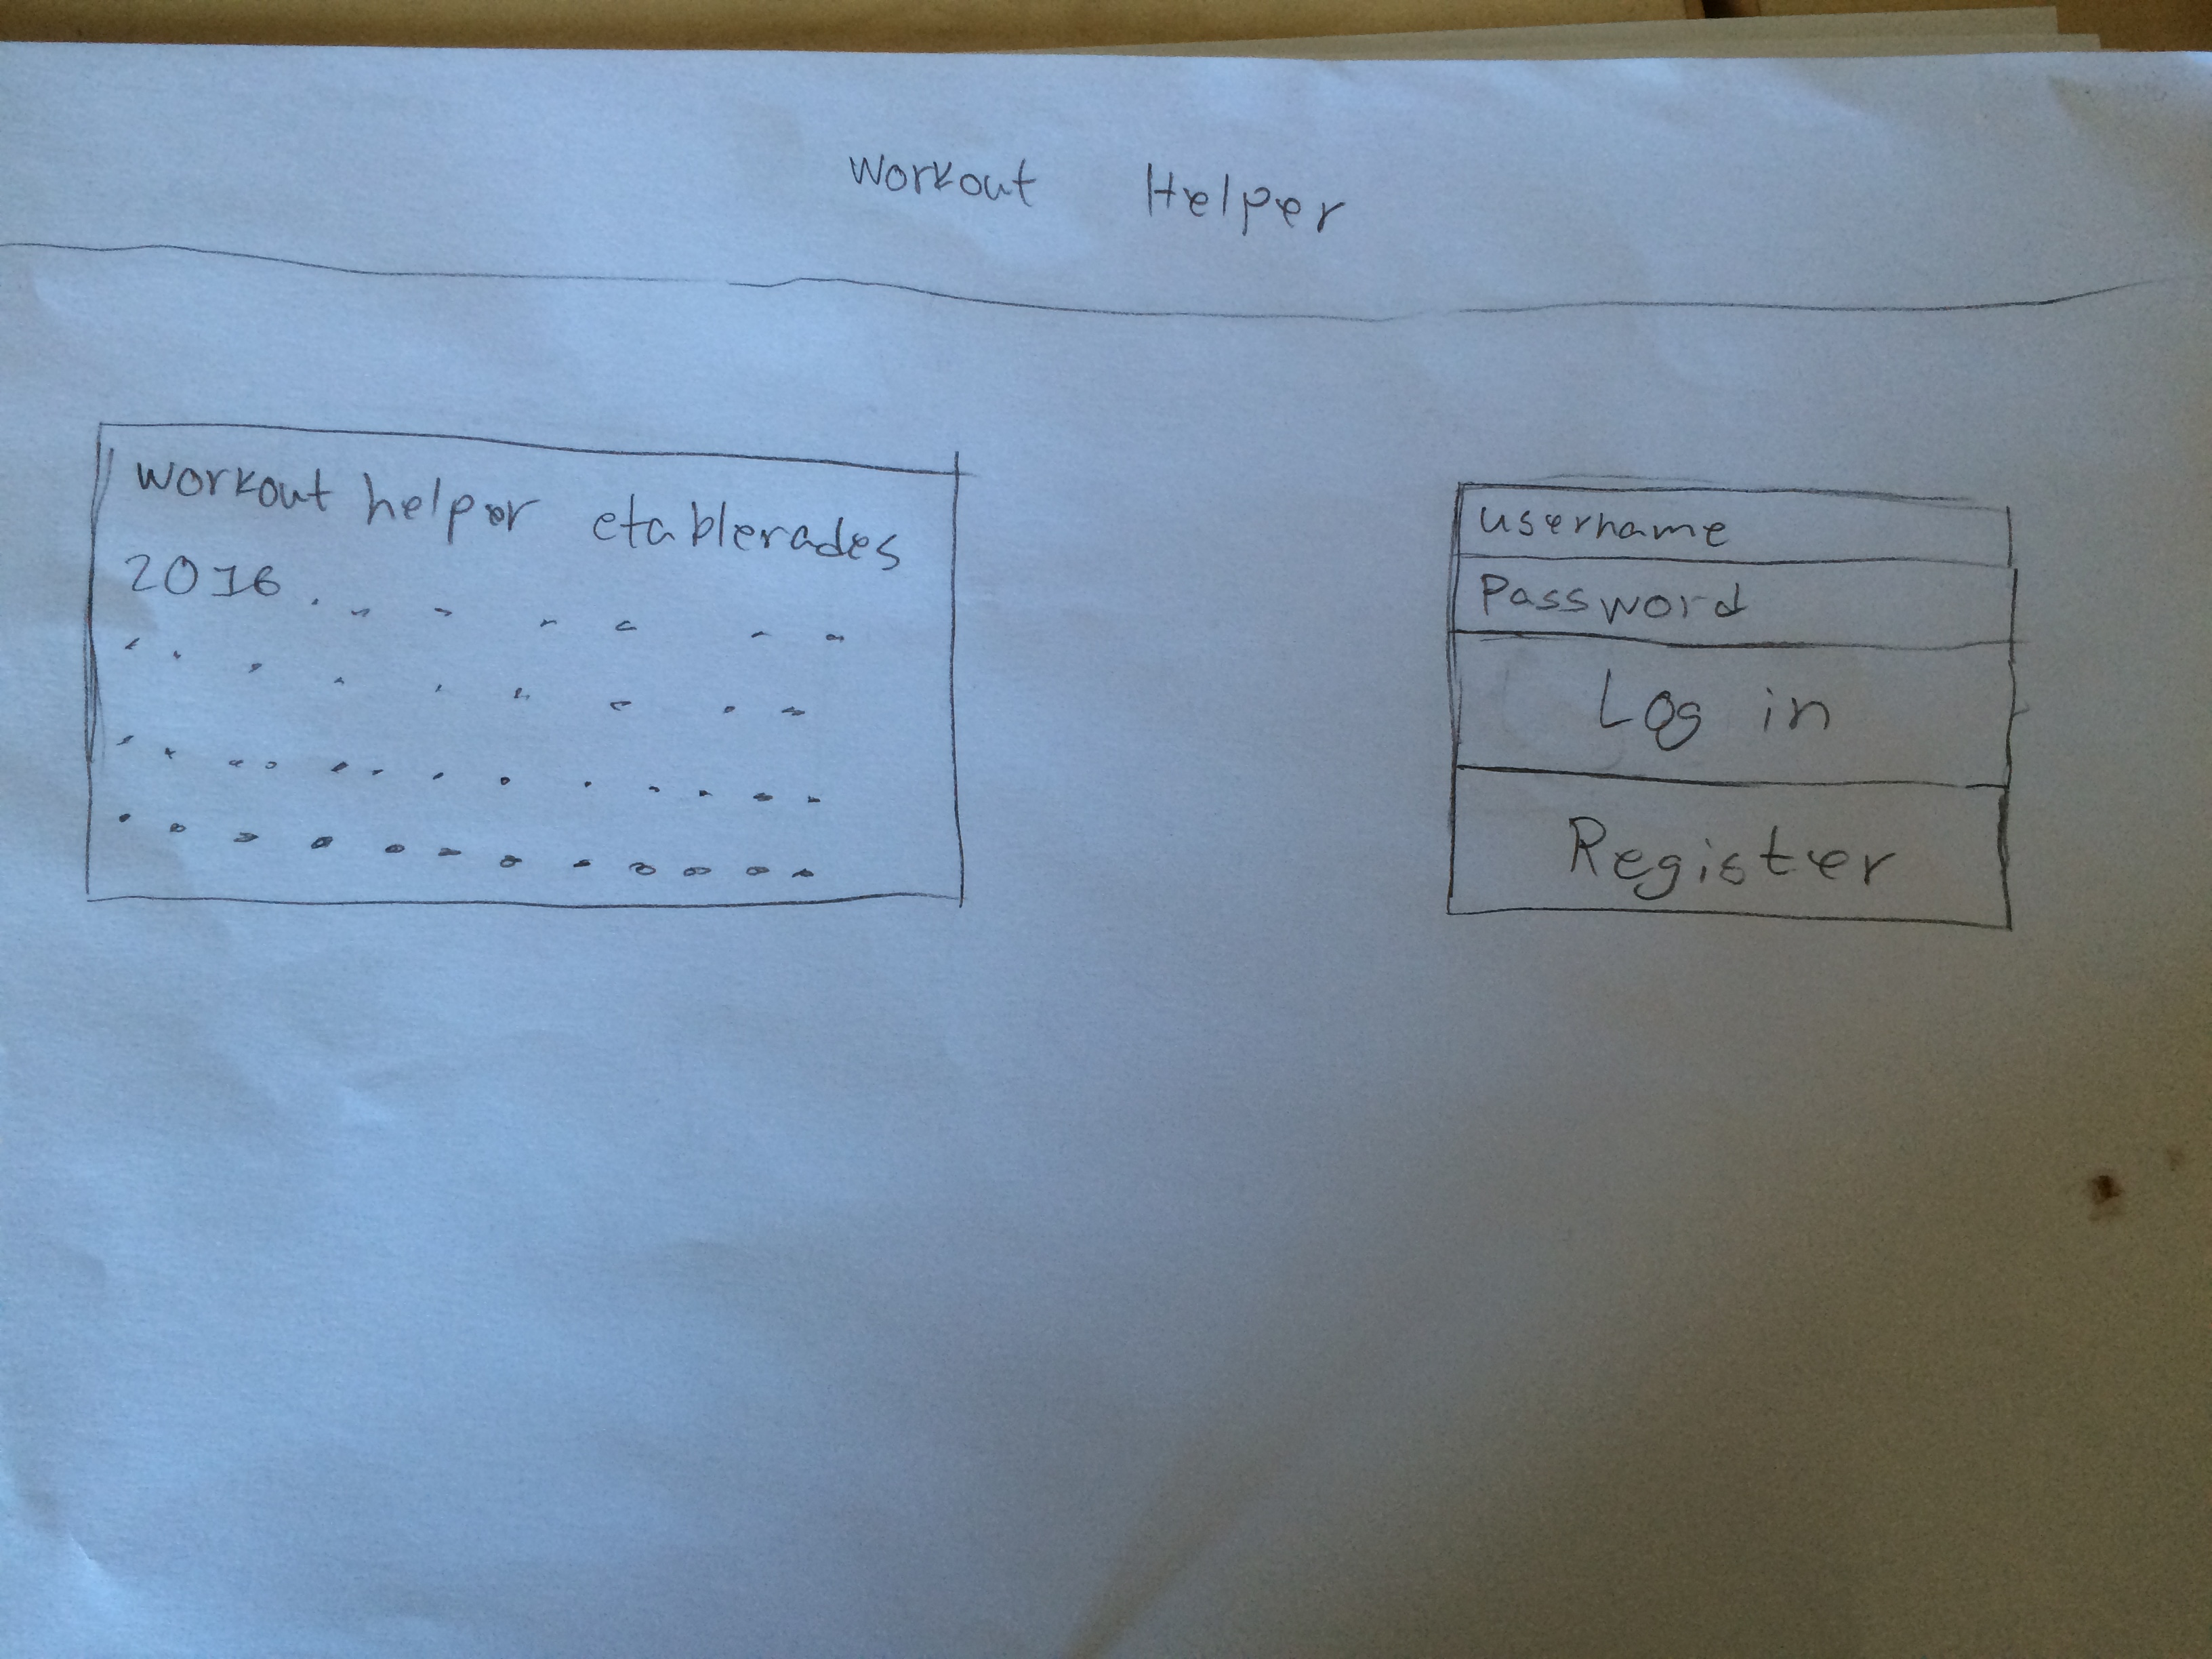 Workout Helper
workout helper etablerades
2016.
username
Password
Log in
Register